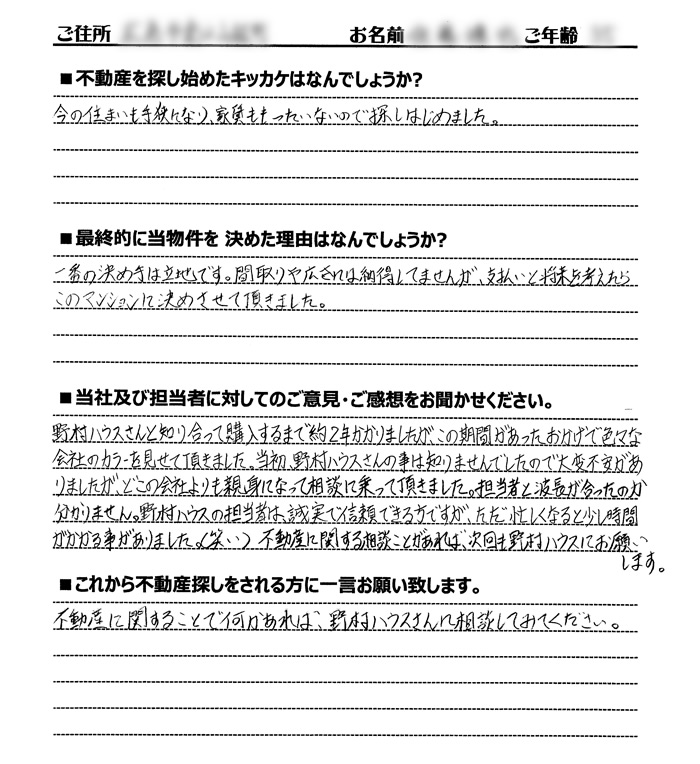 ご住所 お名前 ご年齢
■不動産を探し始めたキッカケはなんでしょうか?
今の住まいも手狭になり、家賃ももったいないので探しはじめました。
■最終的に当物件を 決めた理由はなんでしょうか?
一番の決め手は立地です。間取りや広さには納得してませんが、支払いと将来を考えたら
このマンションに決めさせて頂きました。
■当社及び担当者に対してのご意見・ご感想をお聞かせください。
野村ハウスさんと知り合って購入するまで約2年かかりましたが、この期間があったおかげで色々な
会社のカラーを見せて頂きました。当初、野村ハウスさんの事は知りませんでしたので大変不安があ
りましたが、どこの会社よりも親身になって相談に乗って頂きました。担当者と波長が合ったのか
分かりません。野村ハウスの担当者は、誠実で信頼できる方ですが、ただ忙しくなると少し時間
がかかる事がありました。(笑い) 不動産に関する相談ことがあれば、次回も野村ハウスにお願い
します。
■これから不動産探しをされる方に一言お願い致します。
不動産に関することで何かあれば、野村ハウスさんに相談してみてください。